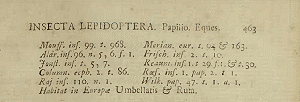 INSECTA LEPIDOPTERA. Papilio. Eques. 463
Mouff. ins. 99. t. 968. Merian. eur. t. 94 & 163.
Aldr. ins. 96. n. 5, 6. f. 1. Frisch. ins. 2. t. 10.
Jonst. ins. t. 5, 7. Reaum. ins. 1. t. 29. f. 1. & t. 30.
Column. ecph. 2. t. 86. Rœs. ins. 1. pap. 2. t. 1.
Raj. ins. 110. n. 1. Wilk. pap. 47. t. 1. a. 1.
Habitat in Europæ Umbellatis & Ruta.